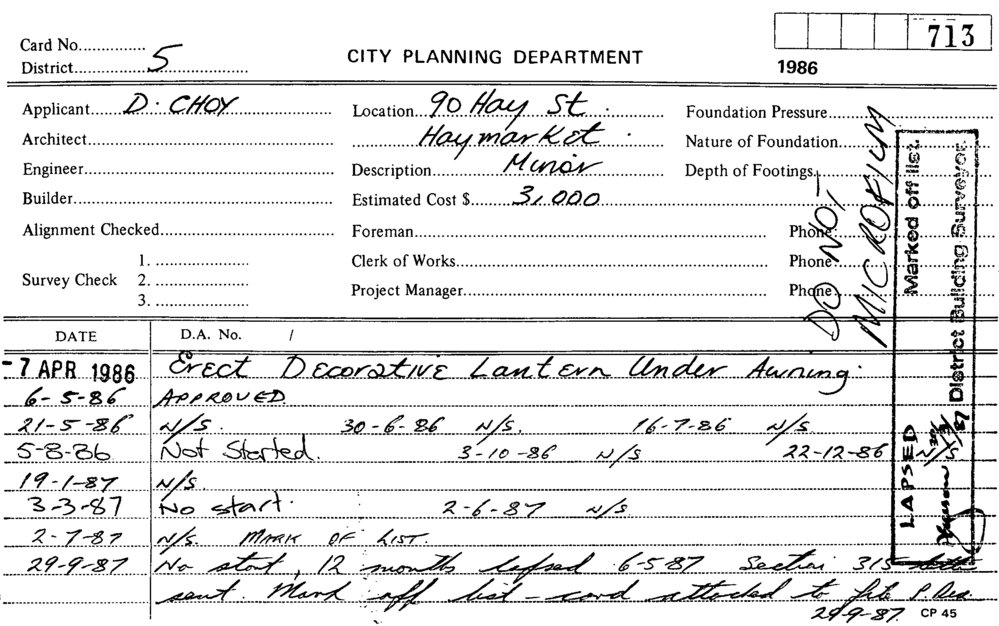 713
Card No.
District 5
CITY PLANNING DEPARTMENT
1986
Applicant D. CHOY
Location 90 Hay St.
Foundation Pressure
Architect
Haymarket.
Nature of Foundation
Engineer
Description Minor
Depth of Footings
Builder
Estimated Cost $ 3,000
Alignment Checked
Foreman
Phone
Survey Check
1.
2.
3.
Clerk of Works
Phone
Project Manager
Phone
DO NOT
MICROFILM
Marked off list.
LAPSED
87 District Building Surveyor.
DATE D.A. No. /
-7 APR 1986 Erect Decorative Lantern Under Awning.
6-5-86 APPROVED.
21-5-86 N/S. 30-6-86 N/S. 16-7-86 N/S
5-8-86 Not Started. 3-10-86 N/S 22-12-86 N/S
19-1-87 N/S
3-3-87 No start. 2-6-87 N/S
2-7-87 N/S. MARK OF LIST.
29-9-87 No start, 12 months lapsed 6-5-87 Section 315
sent. Mark off list - card attached to file
29-9-87. CP 45